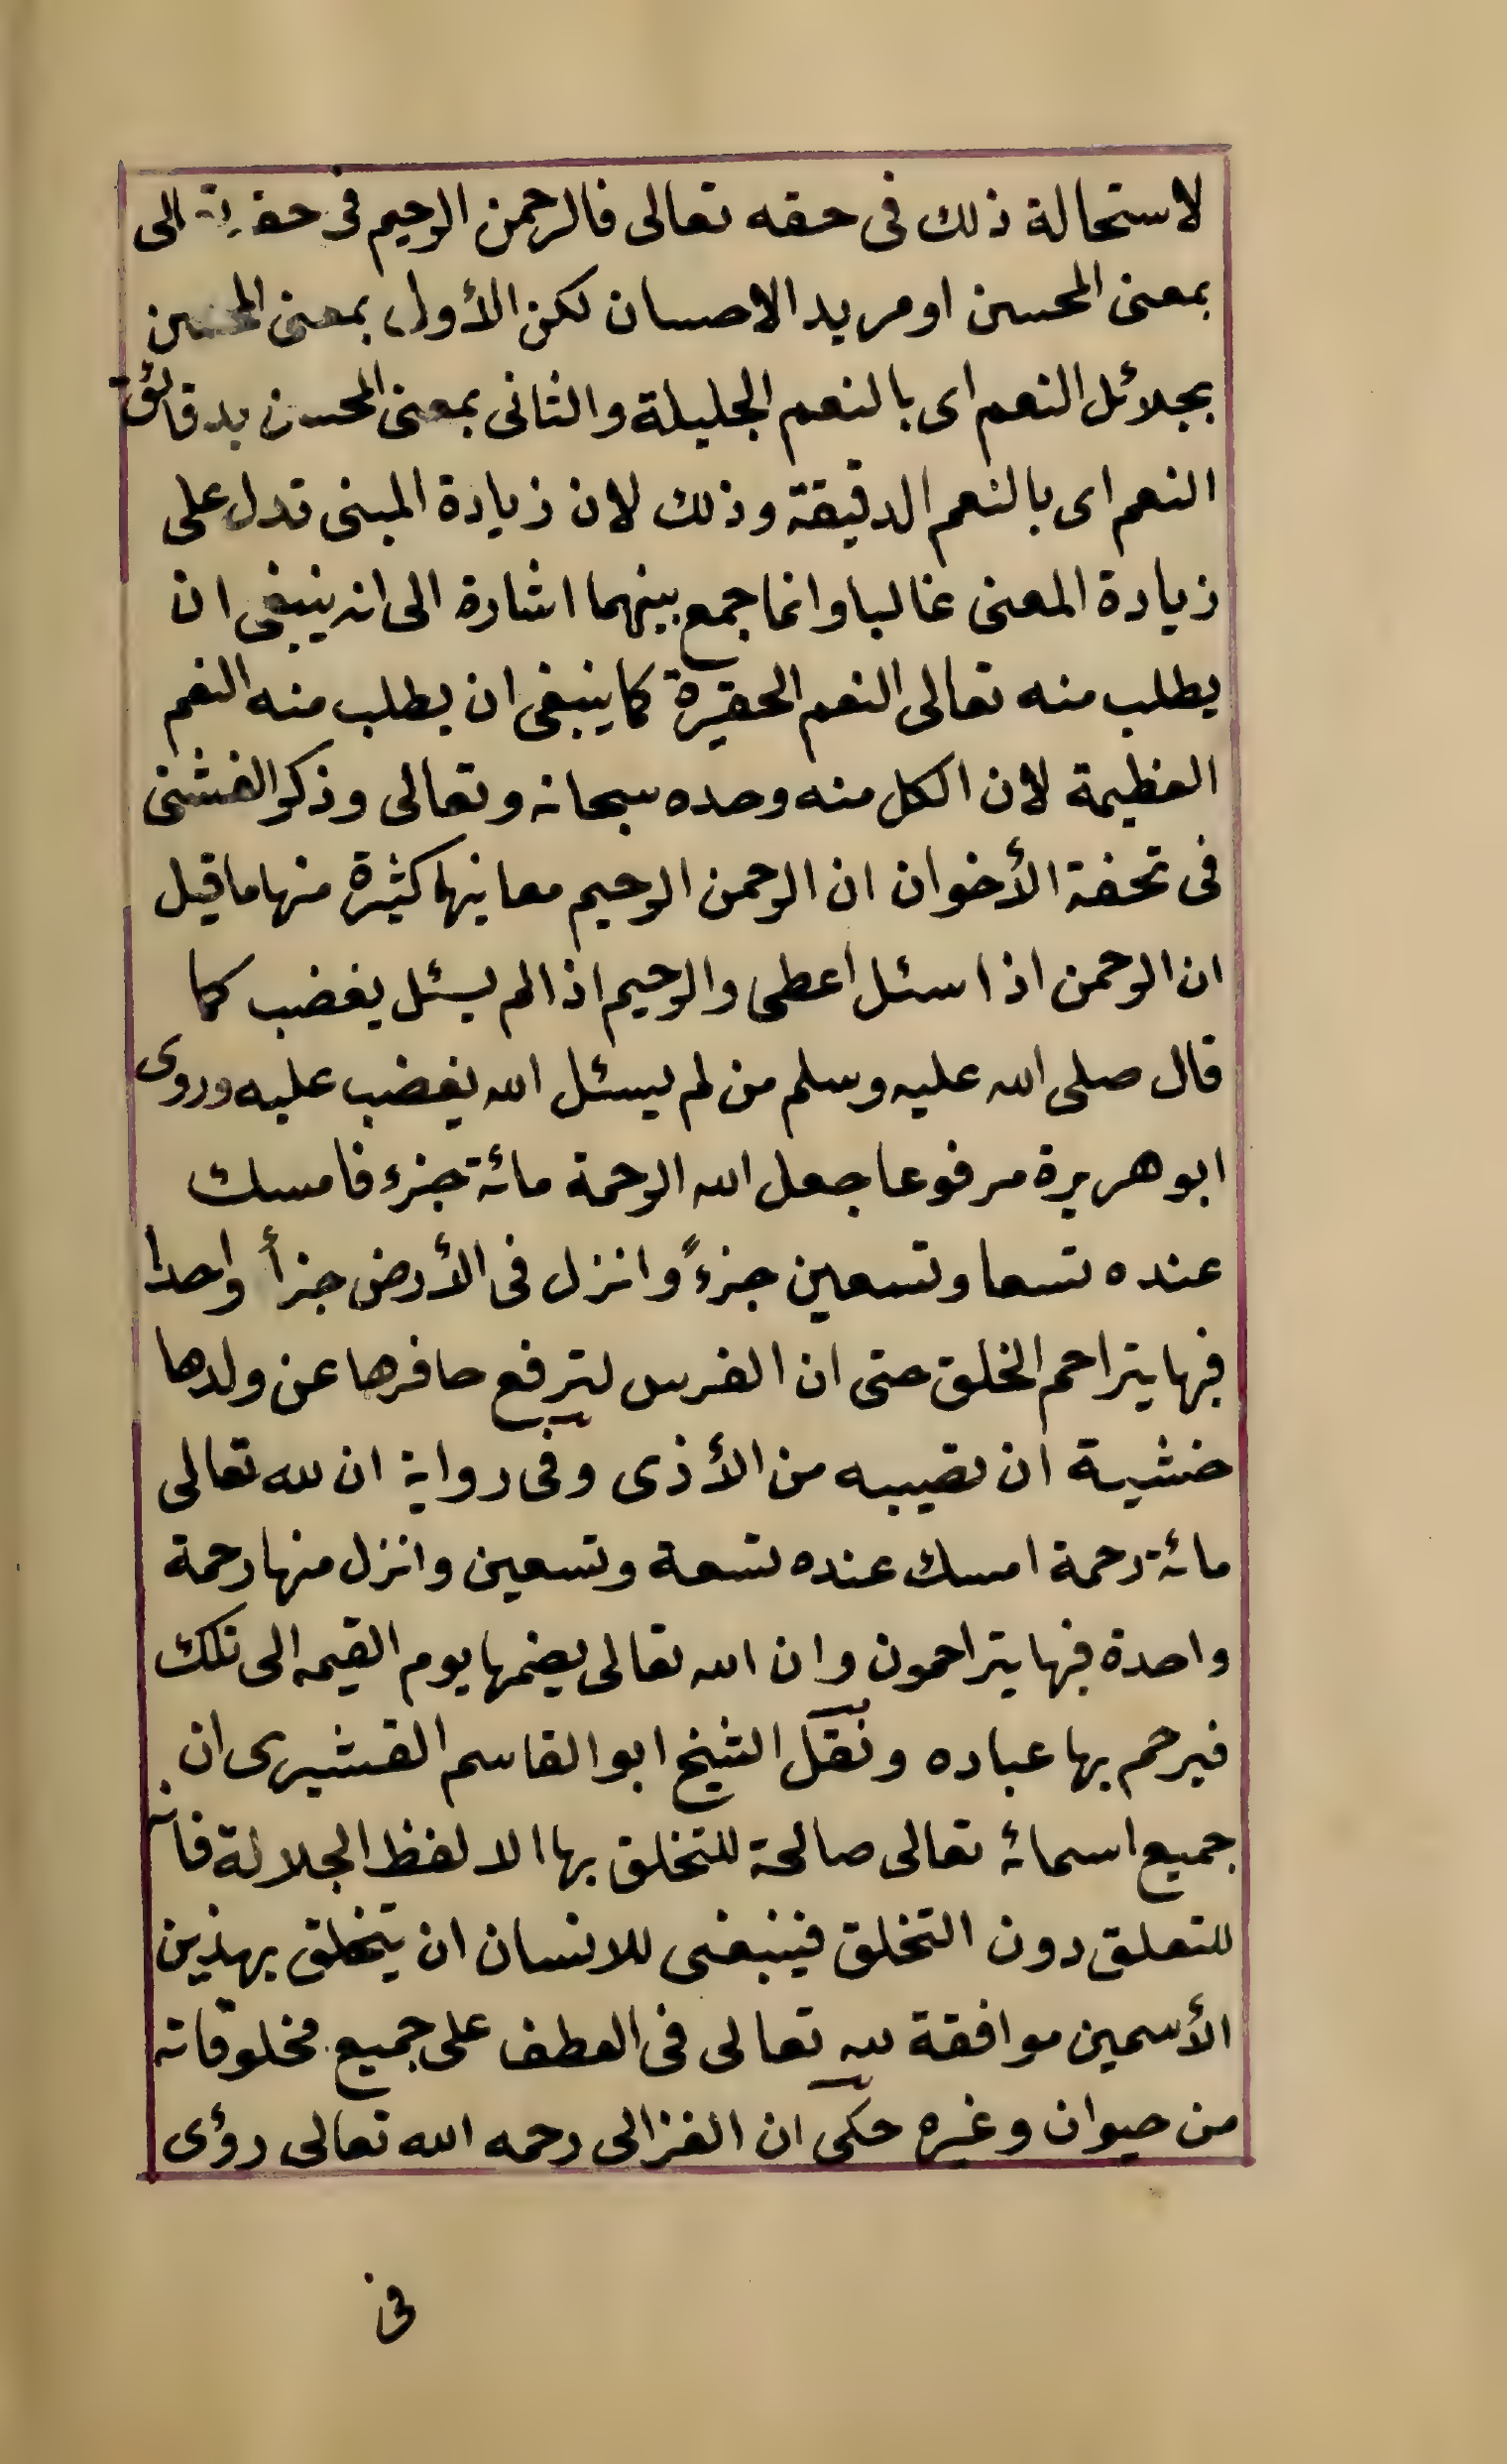 لاستحالة ذلك فى حقه تعالى فالرحمن الرحيم فى حقه تعالى
بمعنى المحسن او مريد الاحسان لكن الأول بمعنى المحسن
بجلائل النعم اى بالنعم الجليلة والثانى بمعنى المحسن بدقائق
النعم اى بالنعم الدقيقة وذلك لان زيادة المبنى تدل على
زيادة المعنى غالبا وانما جمع بينهما اشارة الى انه ينبغى ان
يطلب منه تعالى النعم الحقيرة كما ينبغى ان يطلب منه النعم
العظيمة لان الكل منه وحده سبحانه وتعالى وذكر الفشنى
فى تحفة الأخوان ان الرحمن الرحيم معانيها كثيرة منها ما قيل
ان الرحمن اذا سئل اعطى والرحيم اذا لم يسئل يغضب كما
قال صلى الله عليه وسلم من لم يسئل الله يغضب عليه وروى
ابو هريرة مرفوعا جعل الله الرحمة مائة جزء فامسك
عنده تسعا وتسعين جزءً وانزل فى الأرض جزأ واحدا
فبها يتراحم الخلق حتى ان الفرس لترفع حافرها عن ولدها
خشية ان تصيبه من الأذى وفى رواية ان لله تعالى
مائة رحمة امسك عنده تسعة وتسعين وانزل منها رحمة
واحدة فبها يتراحمون وان الله تعالى يضمها يوم القيمه الى تلك
فيرحم بها عباده ونقل الشيخ ابو القاسم القشيرى ان
جميع اسمائه تعالى صالحة للتخلق بها الا لفظ الجلالة فانه
للتعلق دون التخلق فينبغى للانسان ان يتخلق بهذين
الأسمين موافقة لله تعالى فى العطف على جميع مخلوقاته
من حيوان وغيره حكى ان الغزالى رحمه الله تعالى رؤى
فى